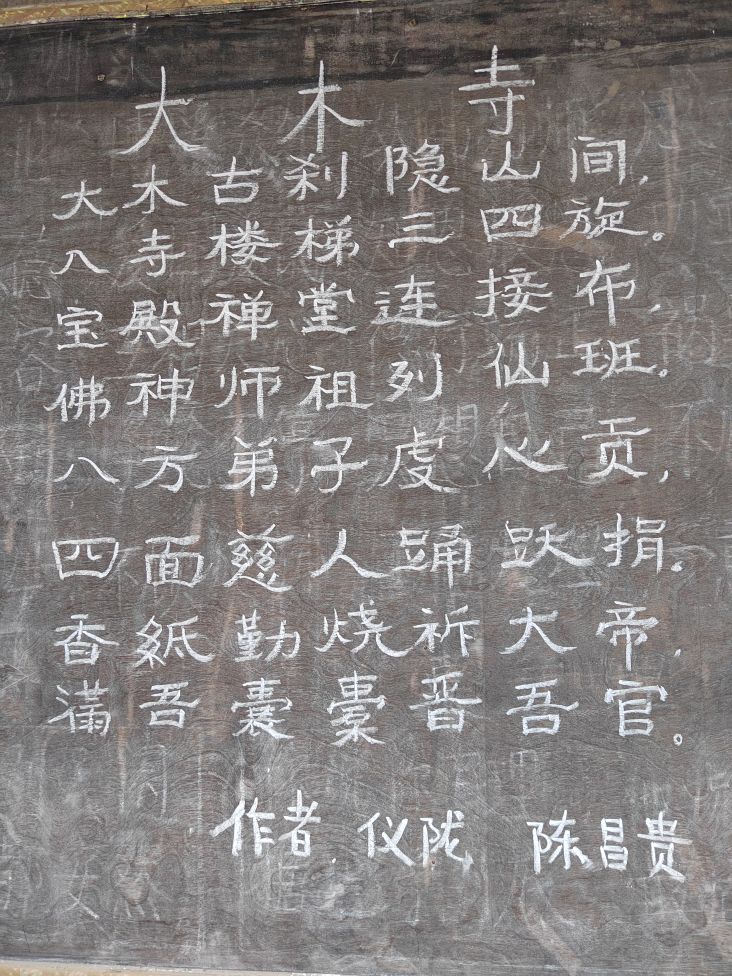 大木寺
大木古刹隐山间,
入寺楼梯三四旋。
宝殿禅堂连接布,
佛神师祖列仙班.
八方弟子虔心贡,
四面慈人踊跃捐.
香紙勤烧祈大帝,
满吾囊橐晋吾官。
作者 仪陇 陈昌贵